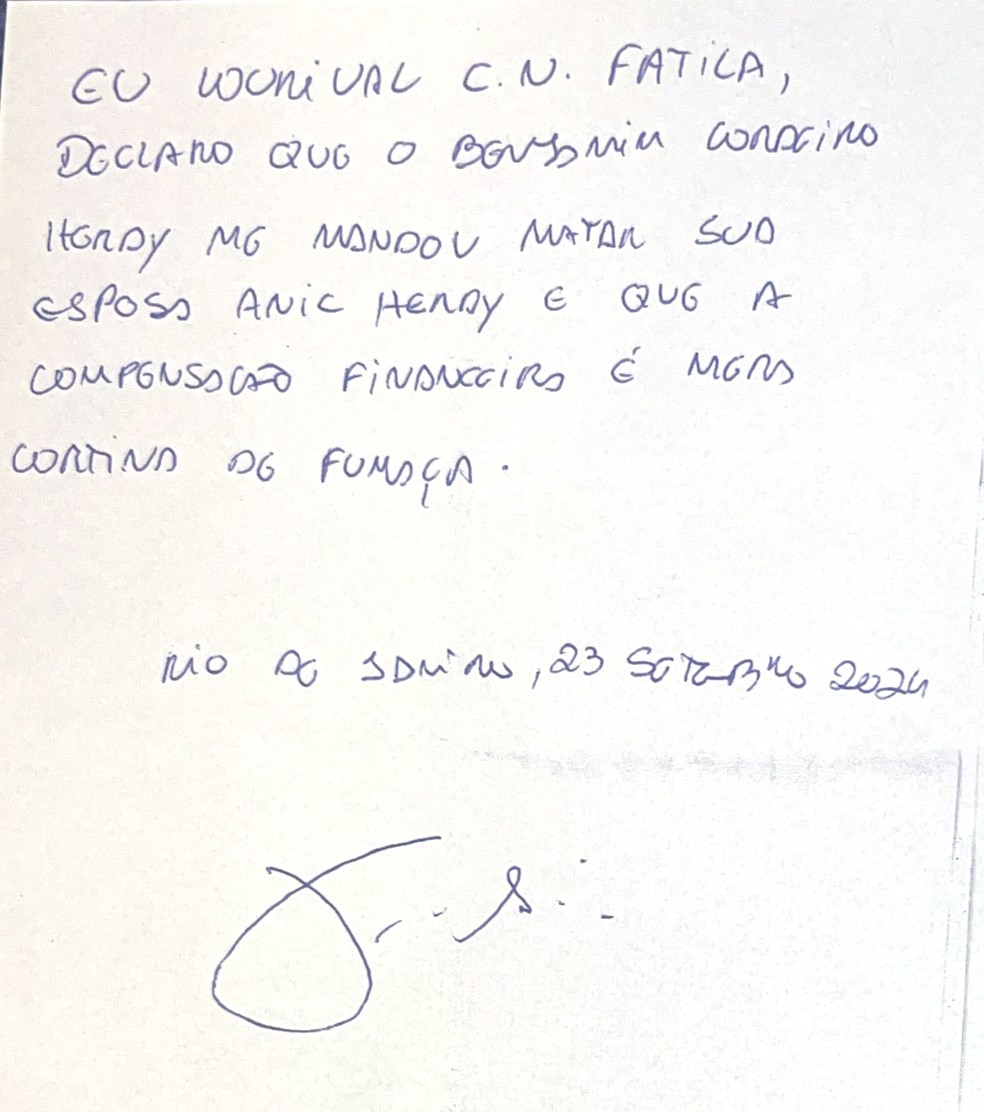 EU LOURIVAL C.N. FATICA,
DECLARO QUE O BENJAMIM CORDEIRO
HERDY ME MANDOU MATAR SUA
ESPOSA ANIC HERDY E QUE A
COMPENSACAO FINANCEIRA É MERA
CORTINA DE FUMAÇA.
RIO DE JANEIRO, 23 SETEMBRO 2024